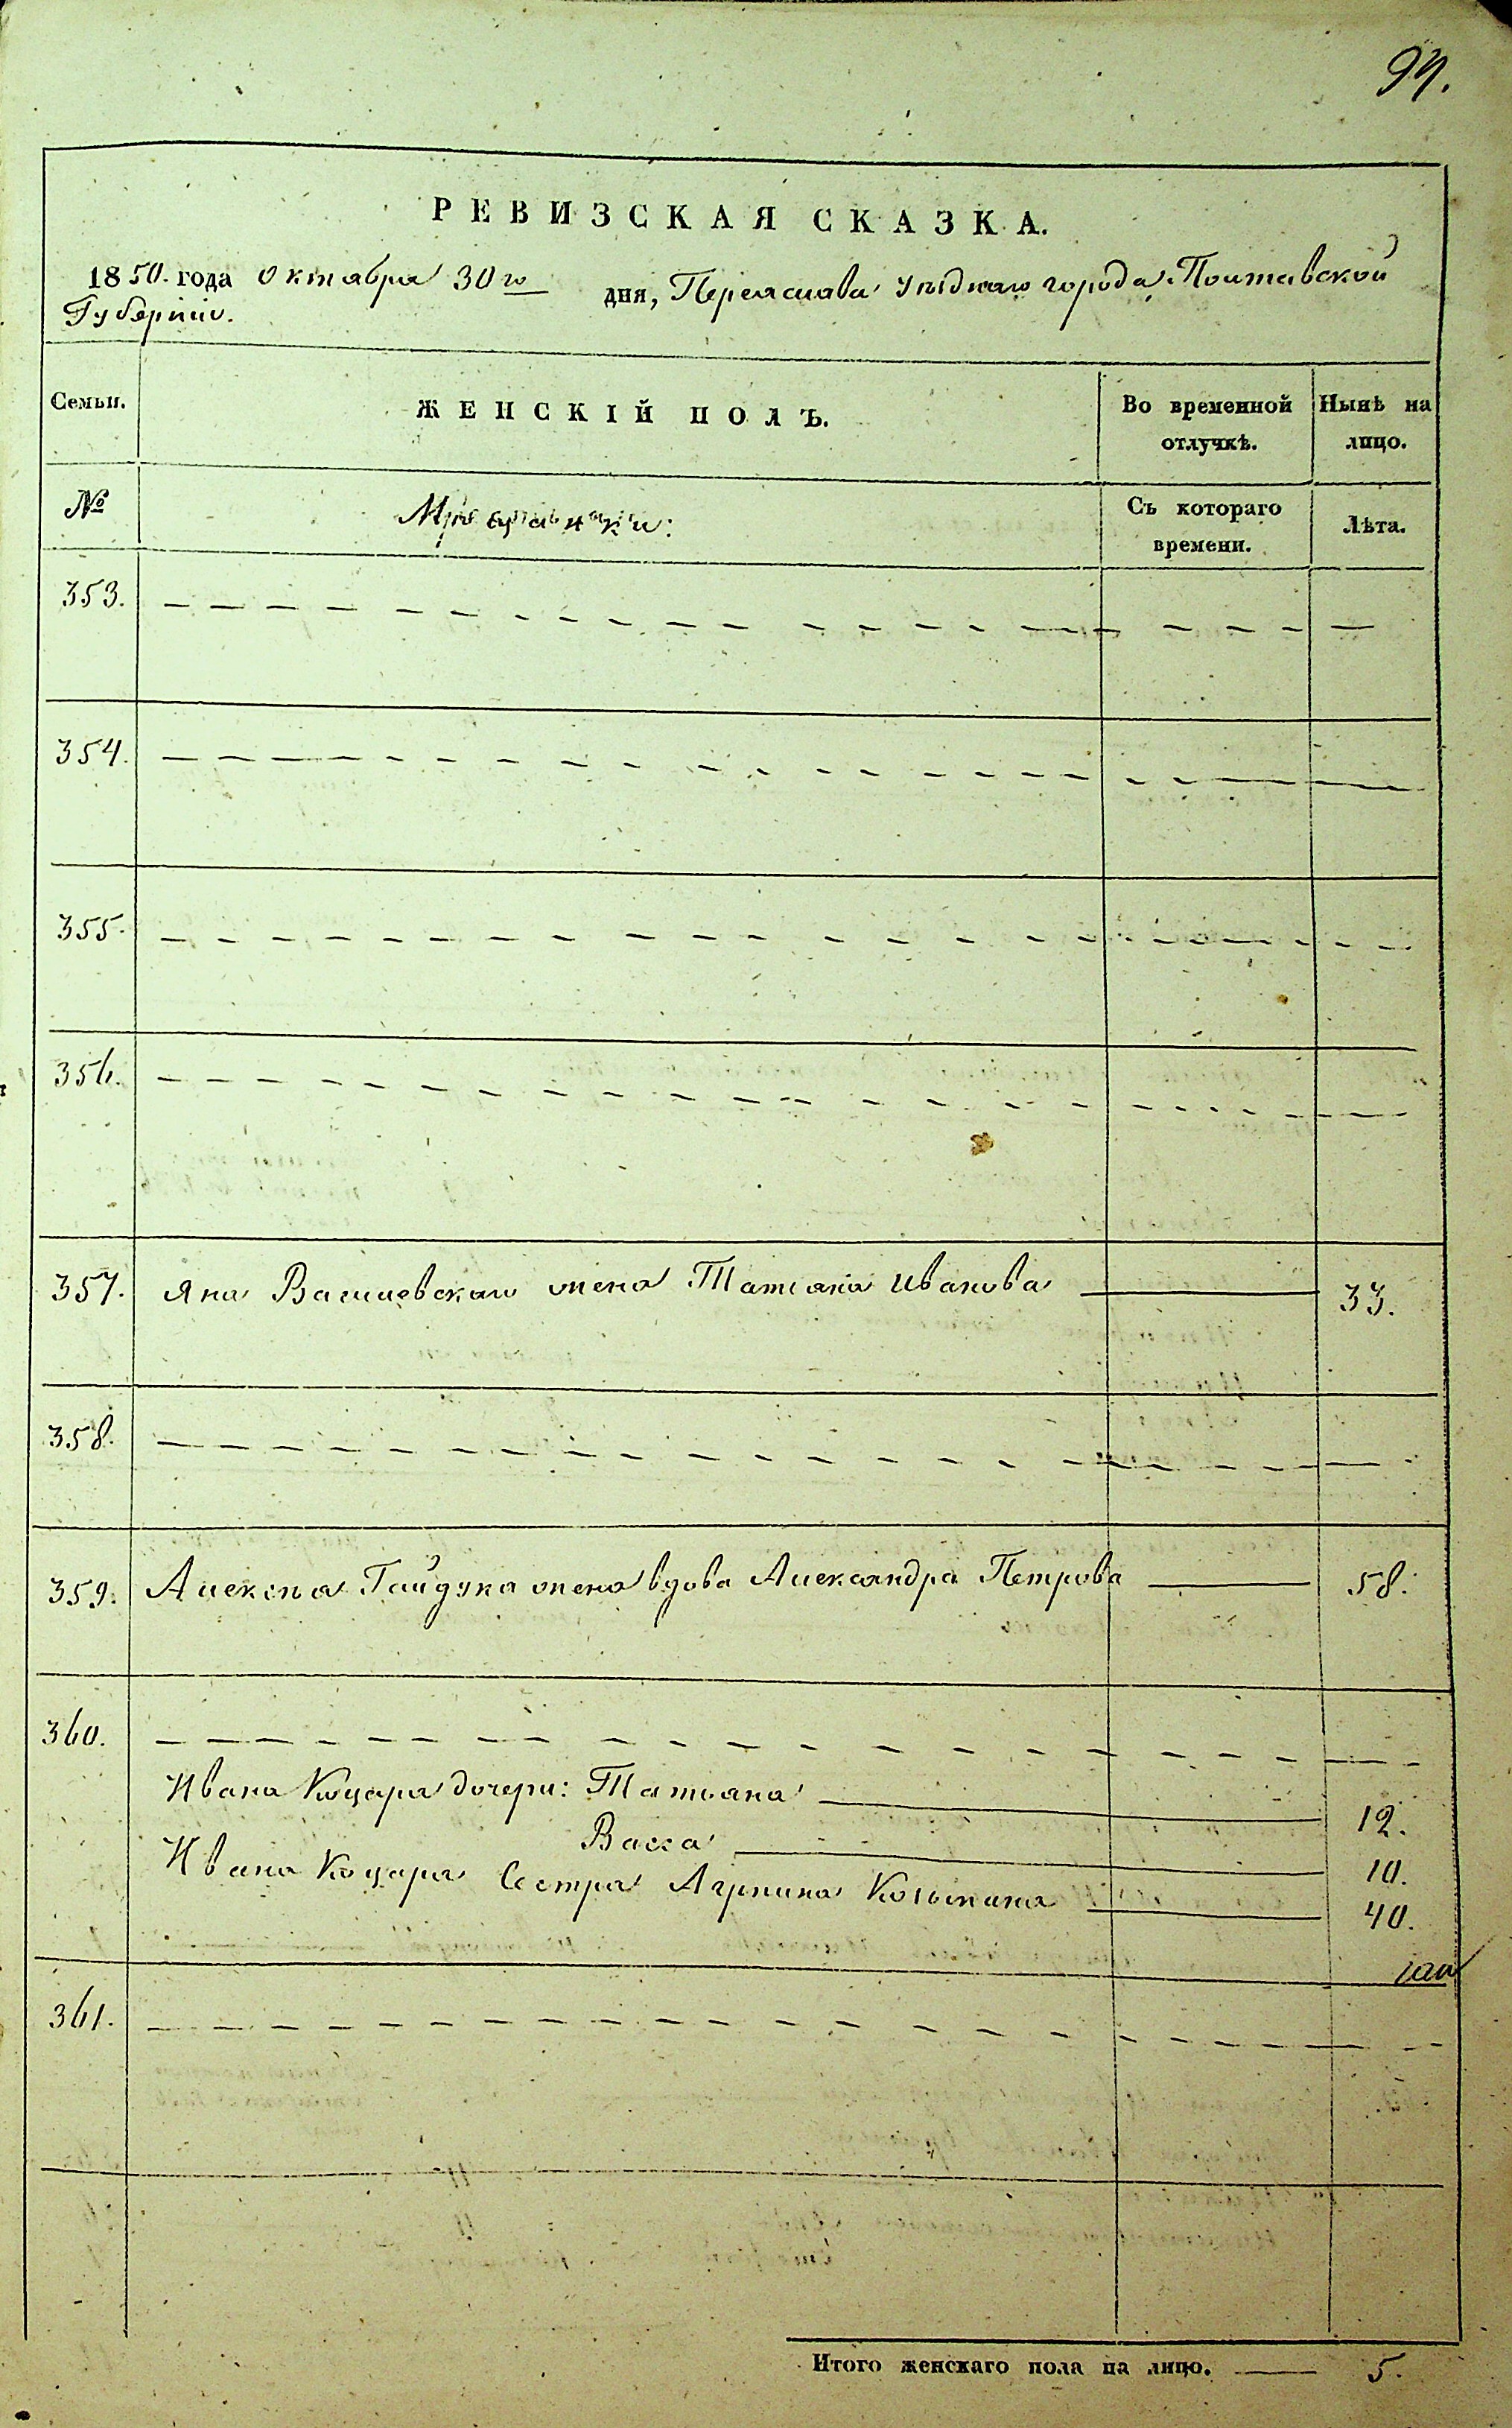 99.
РЕВИЗСКАЯ СКАЗКА.
1850. года Октября 30го дня, Переяслава уѣзднаго города, Полтавской
Губерніи.
Семьи.
ЖЕНСКІЙ ПОЛЪ.
Во временной отлучкѣ.
Нынѣ на лицо.
№
Съ котораго времени.
Лѣта.
353.
354.
355.
356.
357. Яна жена Татіана Иванова 33.
358.
359. Алексѣя Гайдука жена вдова Александра Петрова 58.
360.
Ивана Коцаря дочери: Татіана 12.
Васса 10.
Ивана Коцаря Сестра Агрипина Козьмина 40.
361.
Итого женскаго пола на лицо. 5.